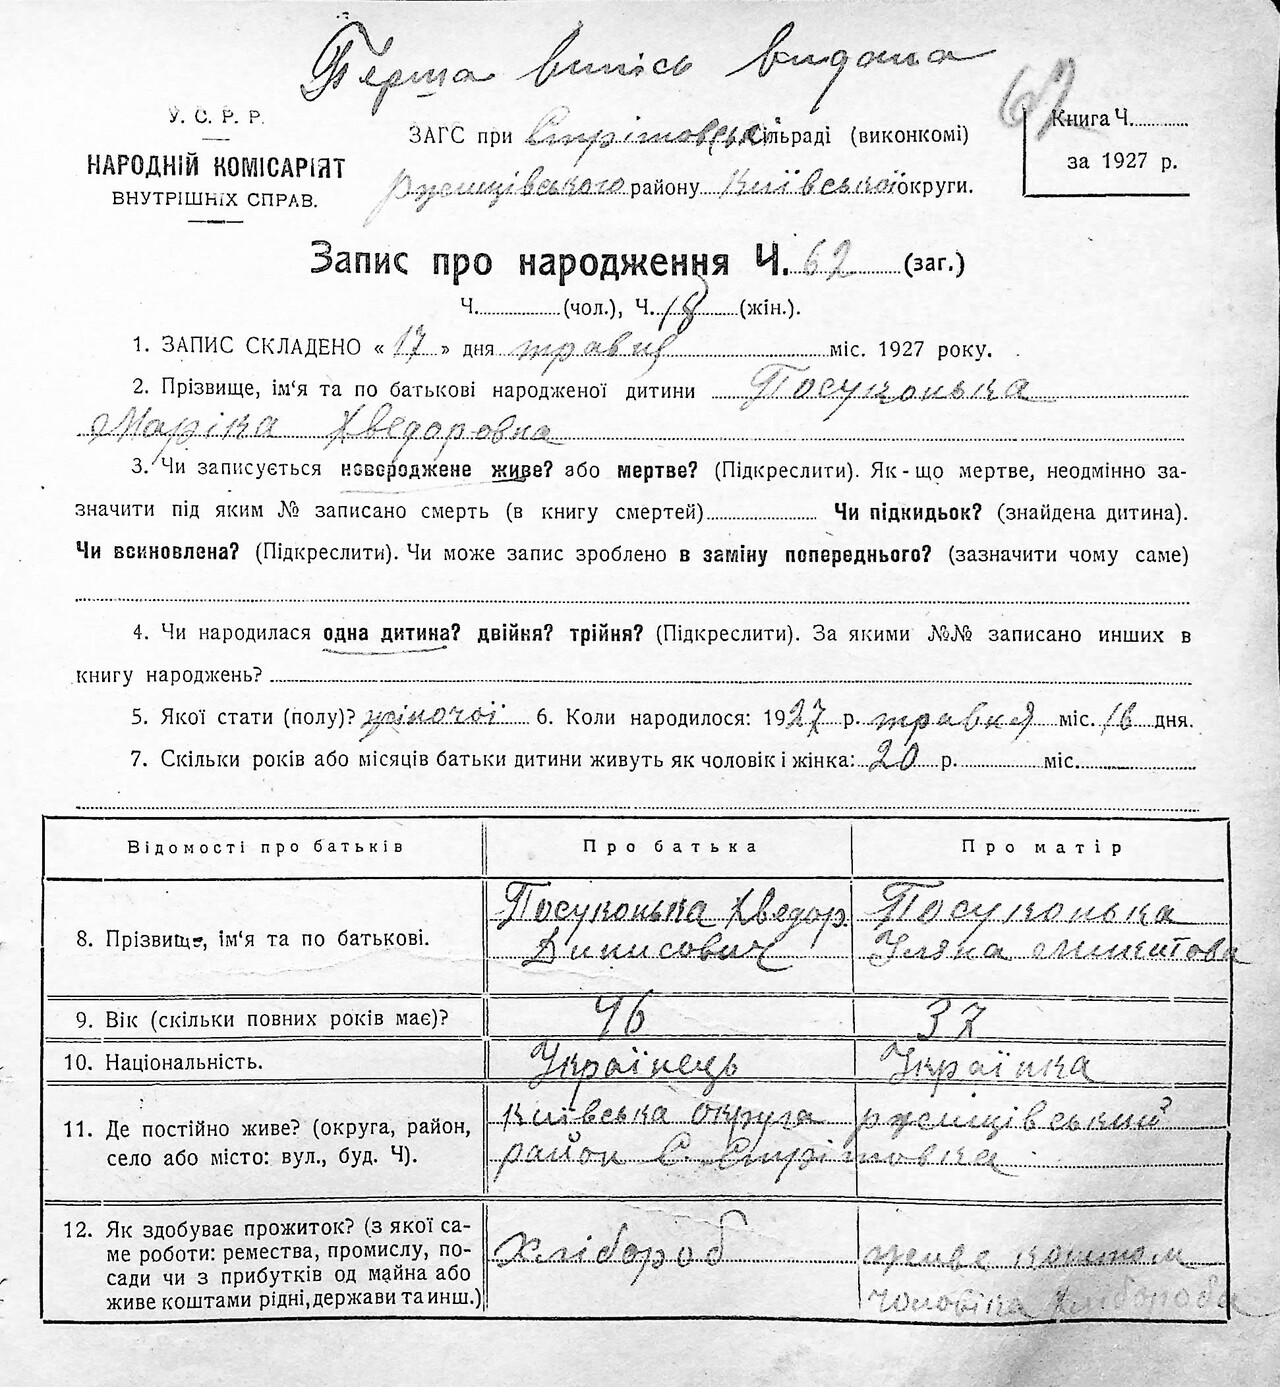 Перша випись видана
62
У. С. Р. Р.
НАРОДНІЙ КОМІСАРІЯТ
ВНУТРІШНІХ СПРАВ.
ЗАГС при Стрітовськ. сільраді (виконкомі)
ржищівського району київської округи.
Книга Ч.
за 1927 р.
Запис про народження Ч. 62 (заг.)
Ч. (чол.), Ч. 18 (жін.).
1. ЗАПИС СКЛАДЕНО « 17 » дня травня міс. 1927 року.
2. Прізвище, ім'я та по батькові народженої дитини Посуконька
Маріка Хведоровна
3. Чи записується новороджене живе? або мертве? (Підкреслити). Як-що мертве, неодмінно за-
значити під яким № записано смерть (в книгу смертей) Чи підкидьок? (знайдена дитина).
Чи всиновлена? (Підкреслити). Чи може запис зроблено в заміну попереднього? (зазначити чому саме)
4. Чи народилася одна дитина? двійня? трійня? (Підкреслити). За якими №№ записано инших в
книгу народжень?
5. Якої стати (полу)? жіночої 6. Коли народилося: 1927 р. травня міс. 16 дня.
7. Скільки років або місяців батьки дитини живуть як чоловік і жінка: 20 р. міс.
Відомості про батьків Про батька Про матір
8. Прізвище, ім'я та по батькові.
Посуконька Хведор.
Динисович
Посуконька
Уляна Микитова
9. Вік (скільки повних років має)? 46 37
10. Національність. Українець Українка
11. Де постійно живе? (округа, район,
село або місто: вул., буд. Ч).
київська округа ржищівський
район С. Стрітовка
12. Як здобуває прожиток? (з якої са-
ме роботи: ремества, промислу, по-
сади чи з прибутків од майна або
живе коштами рідні, держави та инш.)
Хлібороб
живе коштом
чоловіка хлібороба